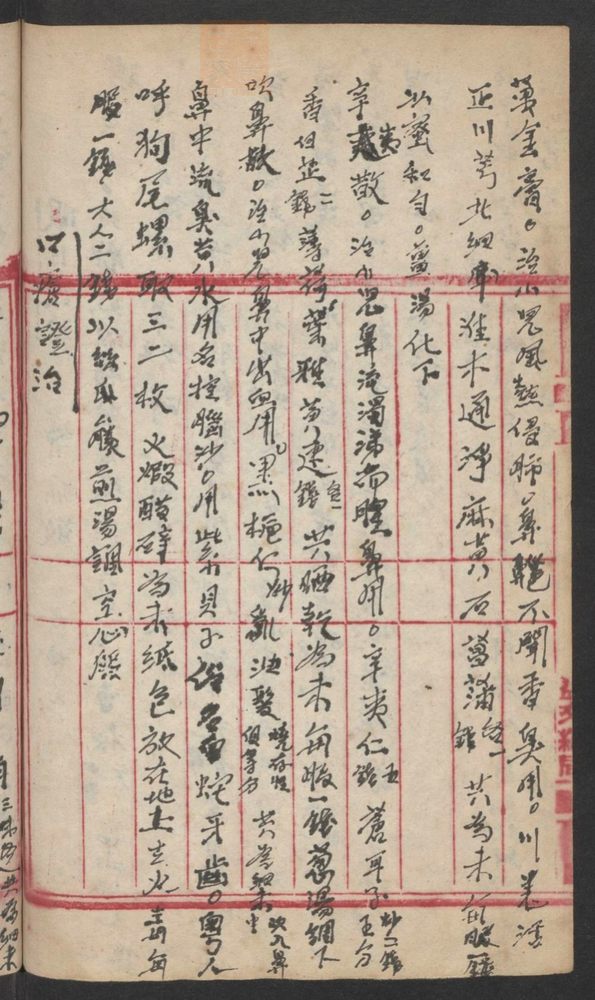 萬金膏。治小兒風熱侵肺。鼻齆不聞香臭用。川羌活
正川芎北細辛淮木通淨麻黃石菖蒲各一錢共為末每服一錢
以蜜和勻。薑湯化下
辛夷散。治小兒鼻流濁涕而腥鼻用。辛夷仁五錢蒼耳子炒二錢五分
香白芷一錢薄荷葉雅黃連各一錢共晒乾為末每服一錢蔥湯調下
吹鼻散。治小兒鼻中出血用。黑梔仁炒亂油髮燒存性俱等分共為細末吹入鼻中
鼻中流臭黃水用名控腦沙。用紫貝子俗名白蛇牙齒。粵人
呼狗尾螺取三二枚火煅醋碎為末紙包放在地上去火毒每
服一錢大人二錢以絲瓜藤煎湯調空心服
口瘡證治